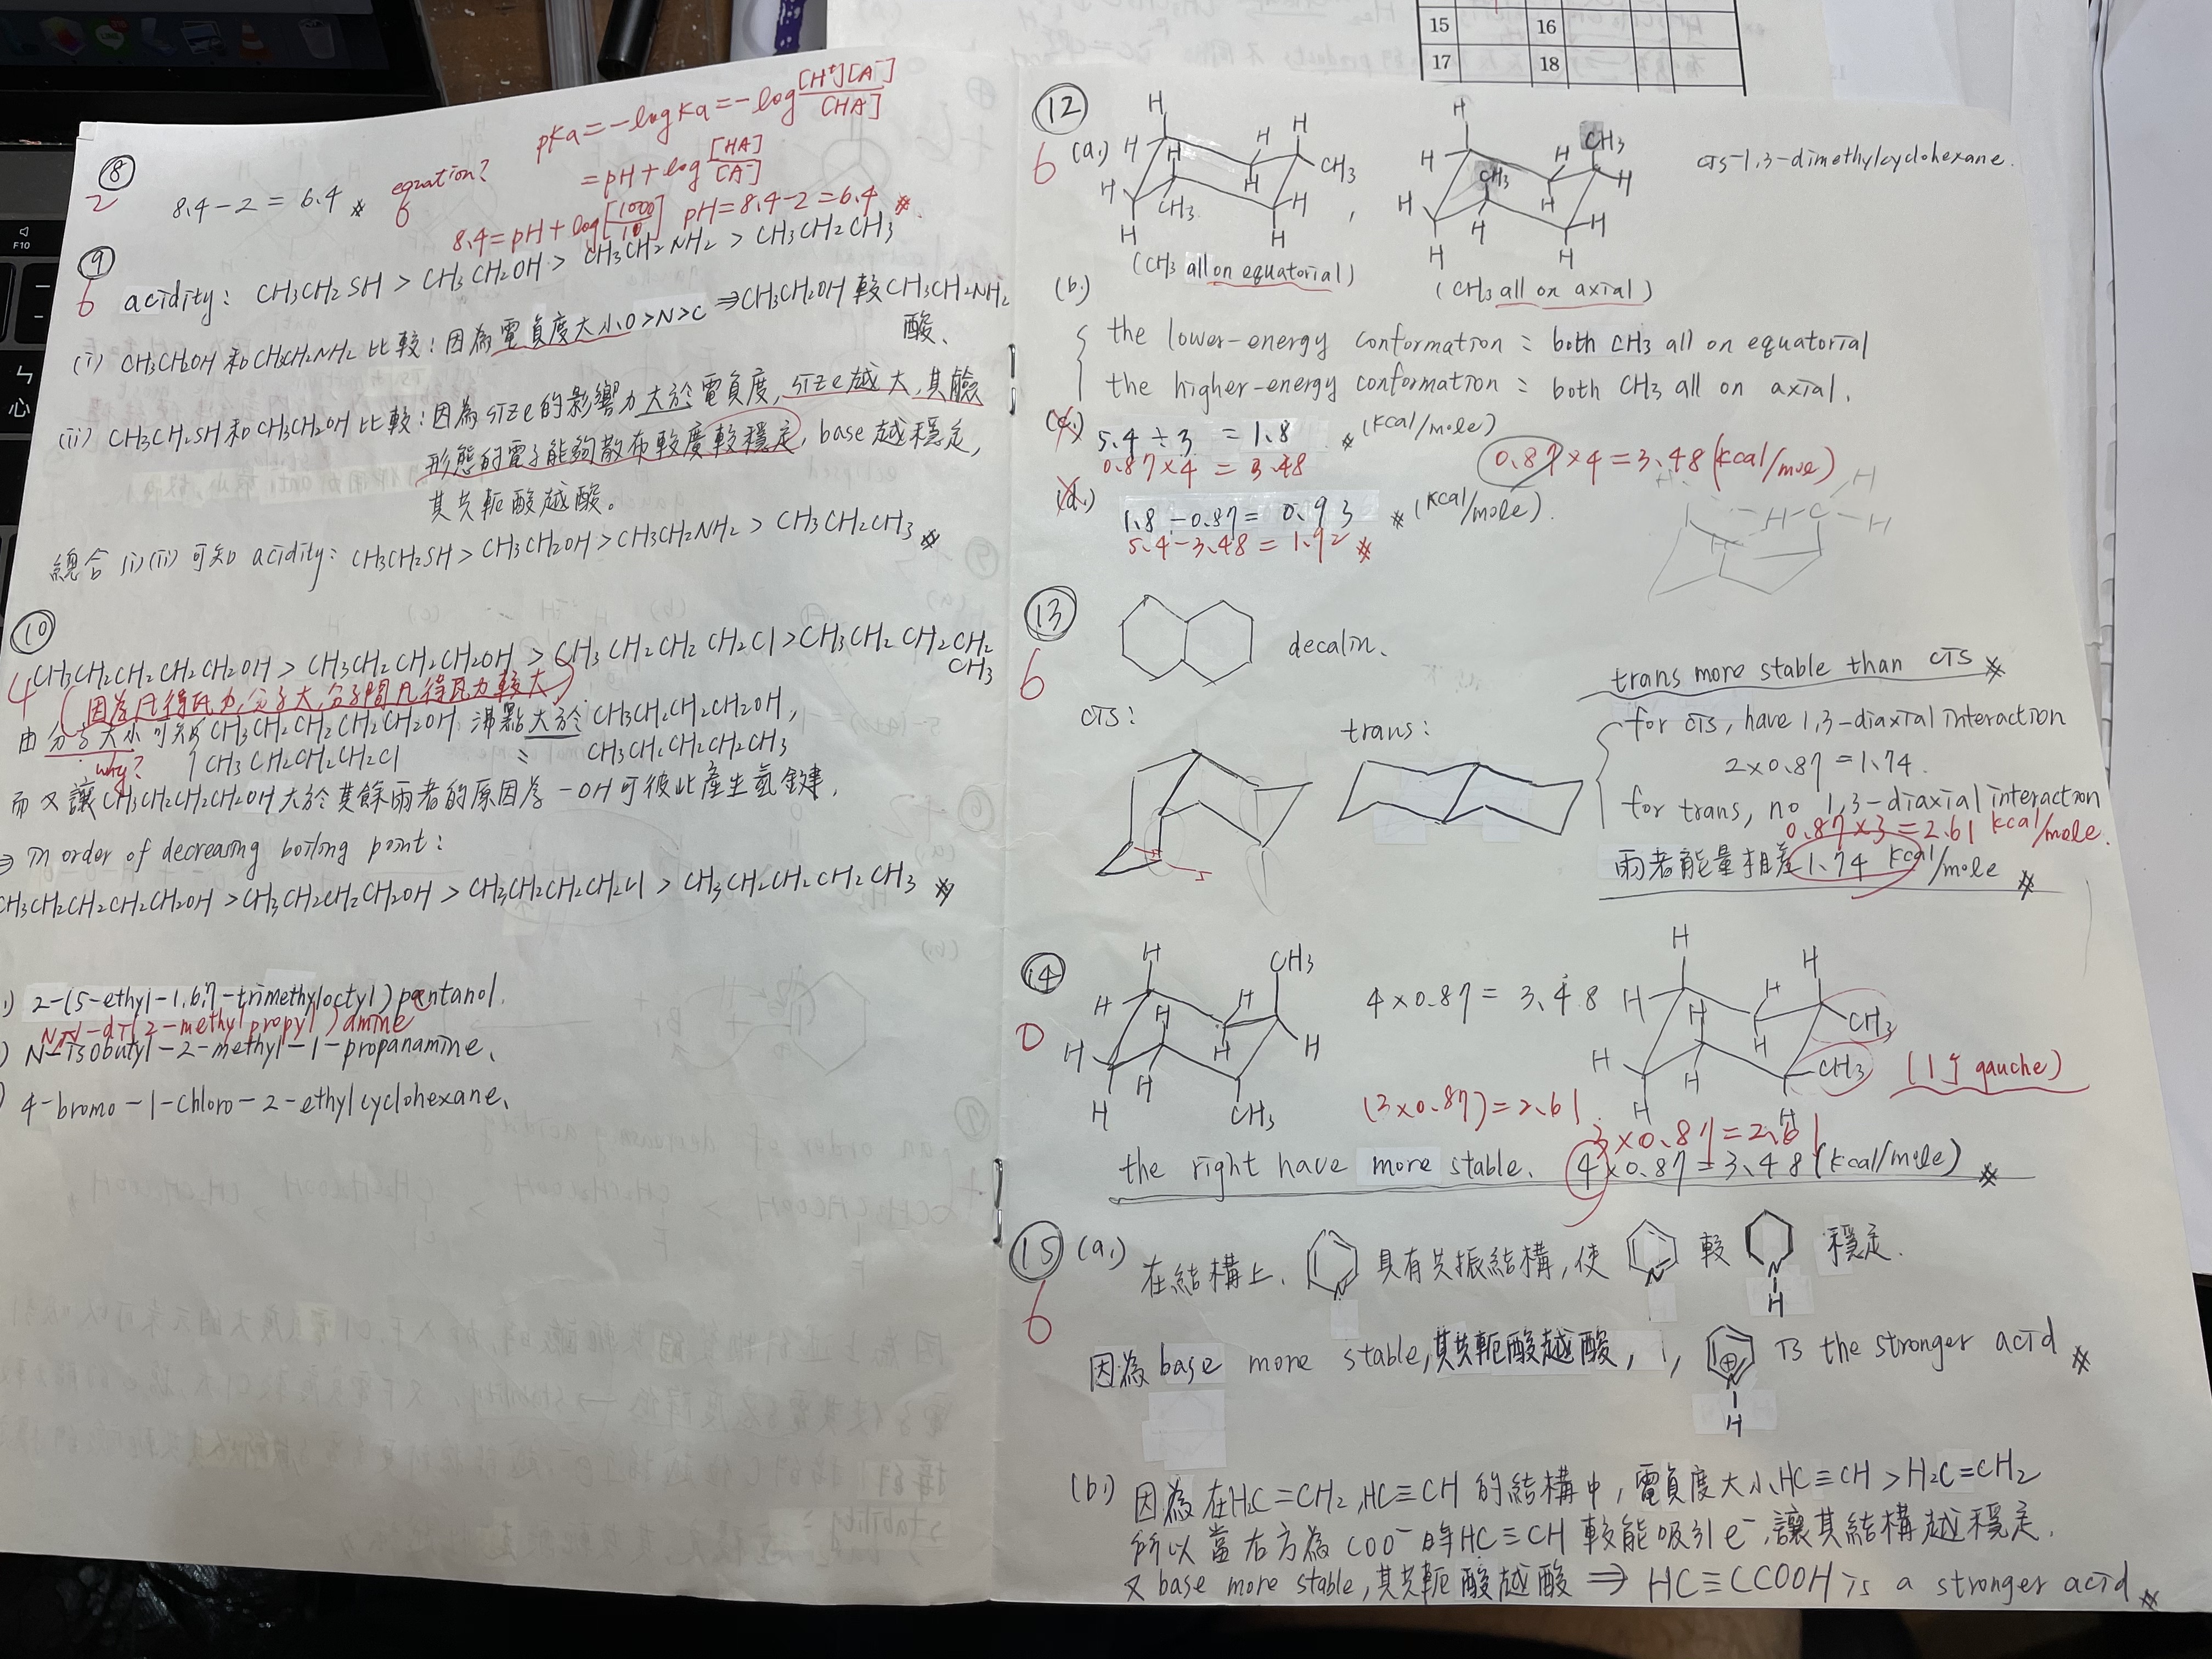 15 16
17 18
F10
心
⑧
2
8.4-2 = 6.4 ※
equation?
6
pKa = -log Ka = -log [H⁺][A⁻]/[HA]
= pH + log [HA]/[A⁻]
8.4 = pH + log [1000/10] pH = 8.4-2 = 6.4 ※
⑨
6
acidity: CH3CH2SH > CH3CH2OH > CH3CH2NH2 > CH3CH2CH3
(i) CH3CH2OH 和 CH3CH2NH2 比較:因為電負度大小 O>N>C ⇒ CH3CH2OH 較 CH3CH2NH2
酸、
(ii) CH3CH2SH 和 CH3CH2OH 比較:因為 size 的影響力大於電負度, size 越大,其鹼
形態的電子能夠散布較廣較穩定, base 越穩定,
其共軛酸越酸。
總合 (i)(ii) 可知 acidity: CH3CH2SH > CH3CH2OH > CH3CH2NH2 > CH3CH2CH3 ※
⑩
4
CH3CH2CH2CH2CH2OH > CH3CH2CH2CH2OH > CH3CH2CH2CH2Cl > CH3CH2CH2CH2
CH3
(因為凡得瓦力,分子大,分子間凡得瓦力較大)
由分子大小可知 CH3CH2CH2CH2CH2OH 沸點大於 CH3CH2CH2CH2OH,
why? CH3CH2CH2CH2Cl CH3CH2CH2CH2CH3
而又讓 CH3CH2CH2CH2OH 大於其餘兩者的原因為 -OH 可彼此產生氫鍵,
⇒ in order of decreasing boiling point:
CH3CH2CH2CH2CH2OH > CH3CH2CH2CH2OH > CH3CH2CH2CH2Cl > CH3CH2CH2CH2CH3 ※
2-(5-ethyl-1,6,7-trimethyloctyl) pentanol.
N,N-di(2-methylpropyl) amine
N-isobutyl-2-methyl-1-propanamine、
4-bromo-1-chloro-2-ethylcyclohexane、
⑫
6
(a.)
H H H H H H CH3 H CH3 H H H H
,
H H CH3 CH3 H H H H H H H H
cis-1,3-dimethylcyclohexane.
(CH3 all on equatorial)
(CH3 all on axial)
(b.)
the lower-energy conformation = both CH3 all on equatorial
the higher-energy conformation = both CH3 all on axial.
(c.) 5.4 ÷ 3 = 1.8 ※ (kcal/mole)
0.87×4 = 3.48
0.87×4 = 3.48 (kcal/mole)
(d.) 1.8 - 0.87 = 0.93 ※ (kcal/mole).
5.4-3.48 = 1.92 ※
H H C H H
⑬
6
decalin、
trans more stable than cis ※
cis:
trans:
for cis, have 1,3-diaxial interaction
2×0.87 = 1.74.
for trans, no 1,3-diaxial interaction
0.87×3 = 2.61 kcal/mole.
兩者能量相差 1.74 kcal/mole ※
⑭
0
H CH3 H H H H H H H H CH3
4×0.87 = 3.48
H H H H H CH3 H CH3 H H H
(1個 gauche)
(3×0.87) = 2.61
3×0.87 = 2.61
the right have more stable. 4×0.87 = 3.48 (kcal/mole) ※
⑮
6
(a.) 在結構上、 N 具有共振結構,使 N 較 N H 穩定.
因為 base more stable,其共軛酸越酸, ∴, ⊕ N H is the stronger acid ※
(b.) 因為在 H2C=CH2, HC≡CH 的結構中, 電負度大小 HC≡CH > H2C=CH2
所以當右方為 COO⁻ 時 HC≡CH 較能吸引 e⁻,讓其結構越穩定.
又 base more stable,其共軛酸越酸 ⇒ HC≡CCOOH is a stronger acid ※